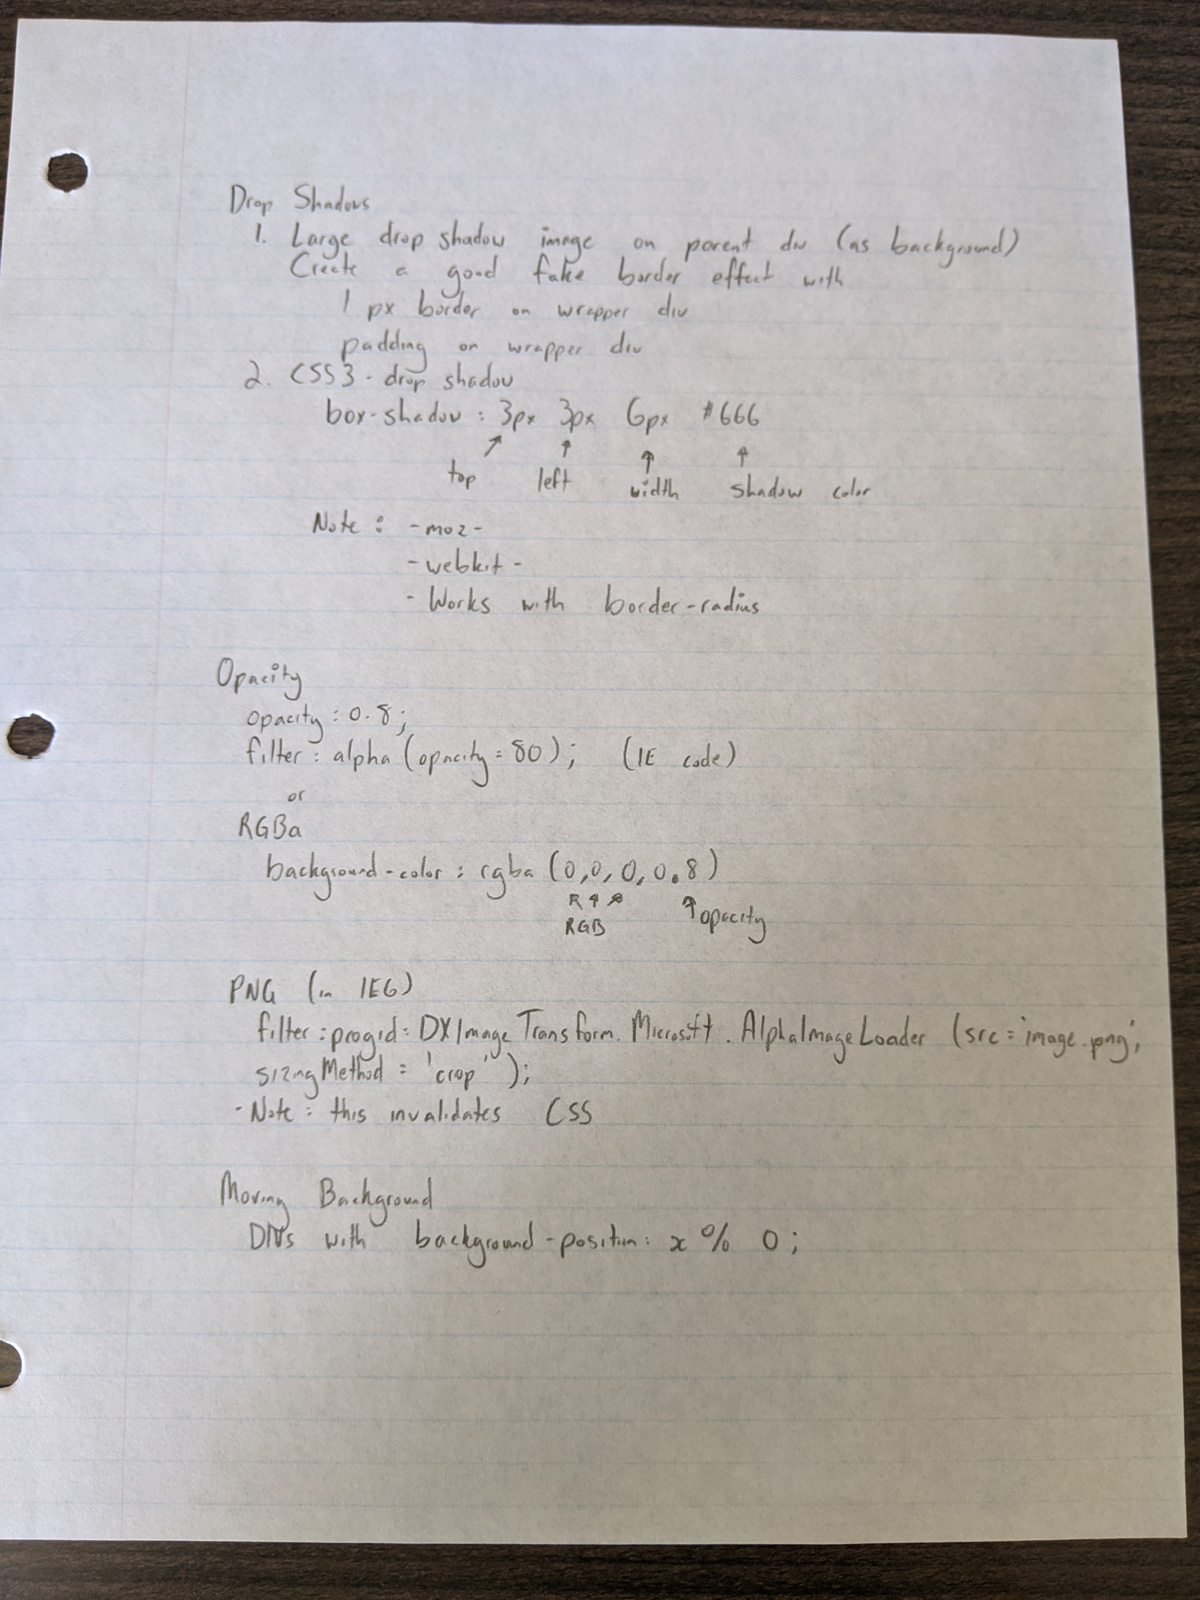 Drop Shadows
1. Large drop shadow image on parent div (as background)
Create a good fake border effect with
1 px border on wrapper div
padding on wrapper div
2. CSS3 - drop shadow
box-shadow : 3px 3px 6px #666
top left width shadow color
Note : -moz-
-webkit-
- Works with border-radius
Opacity
opacity : 0.8;
filter : alpha (opacity = 80); (IE code)
or
RGBa
background-color : rgba (0,0,0,0.8)
RGB opacity
PNG (in IE6)
filter : progid : DXImage Transform. Microsoft . AlphaImageLoader (src = 'image.png',
sizingMethod = 'crop' );
- Note : this invalidates CSS
Moving Background
DIVs with background-position: x % 0 ;